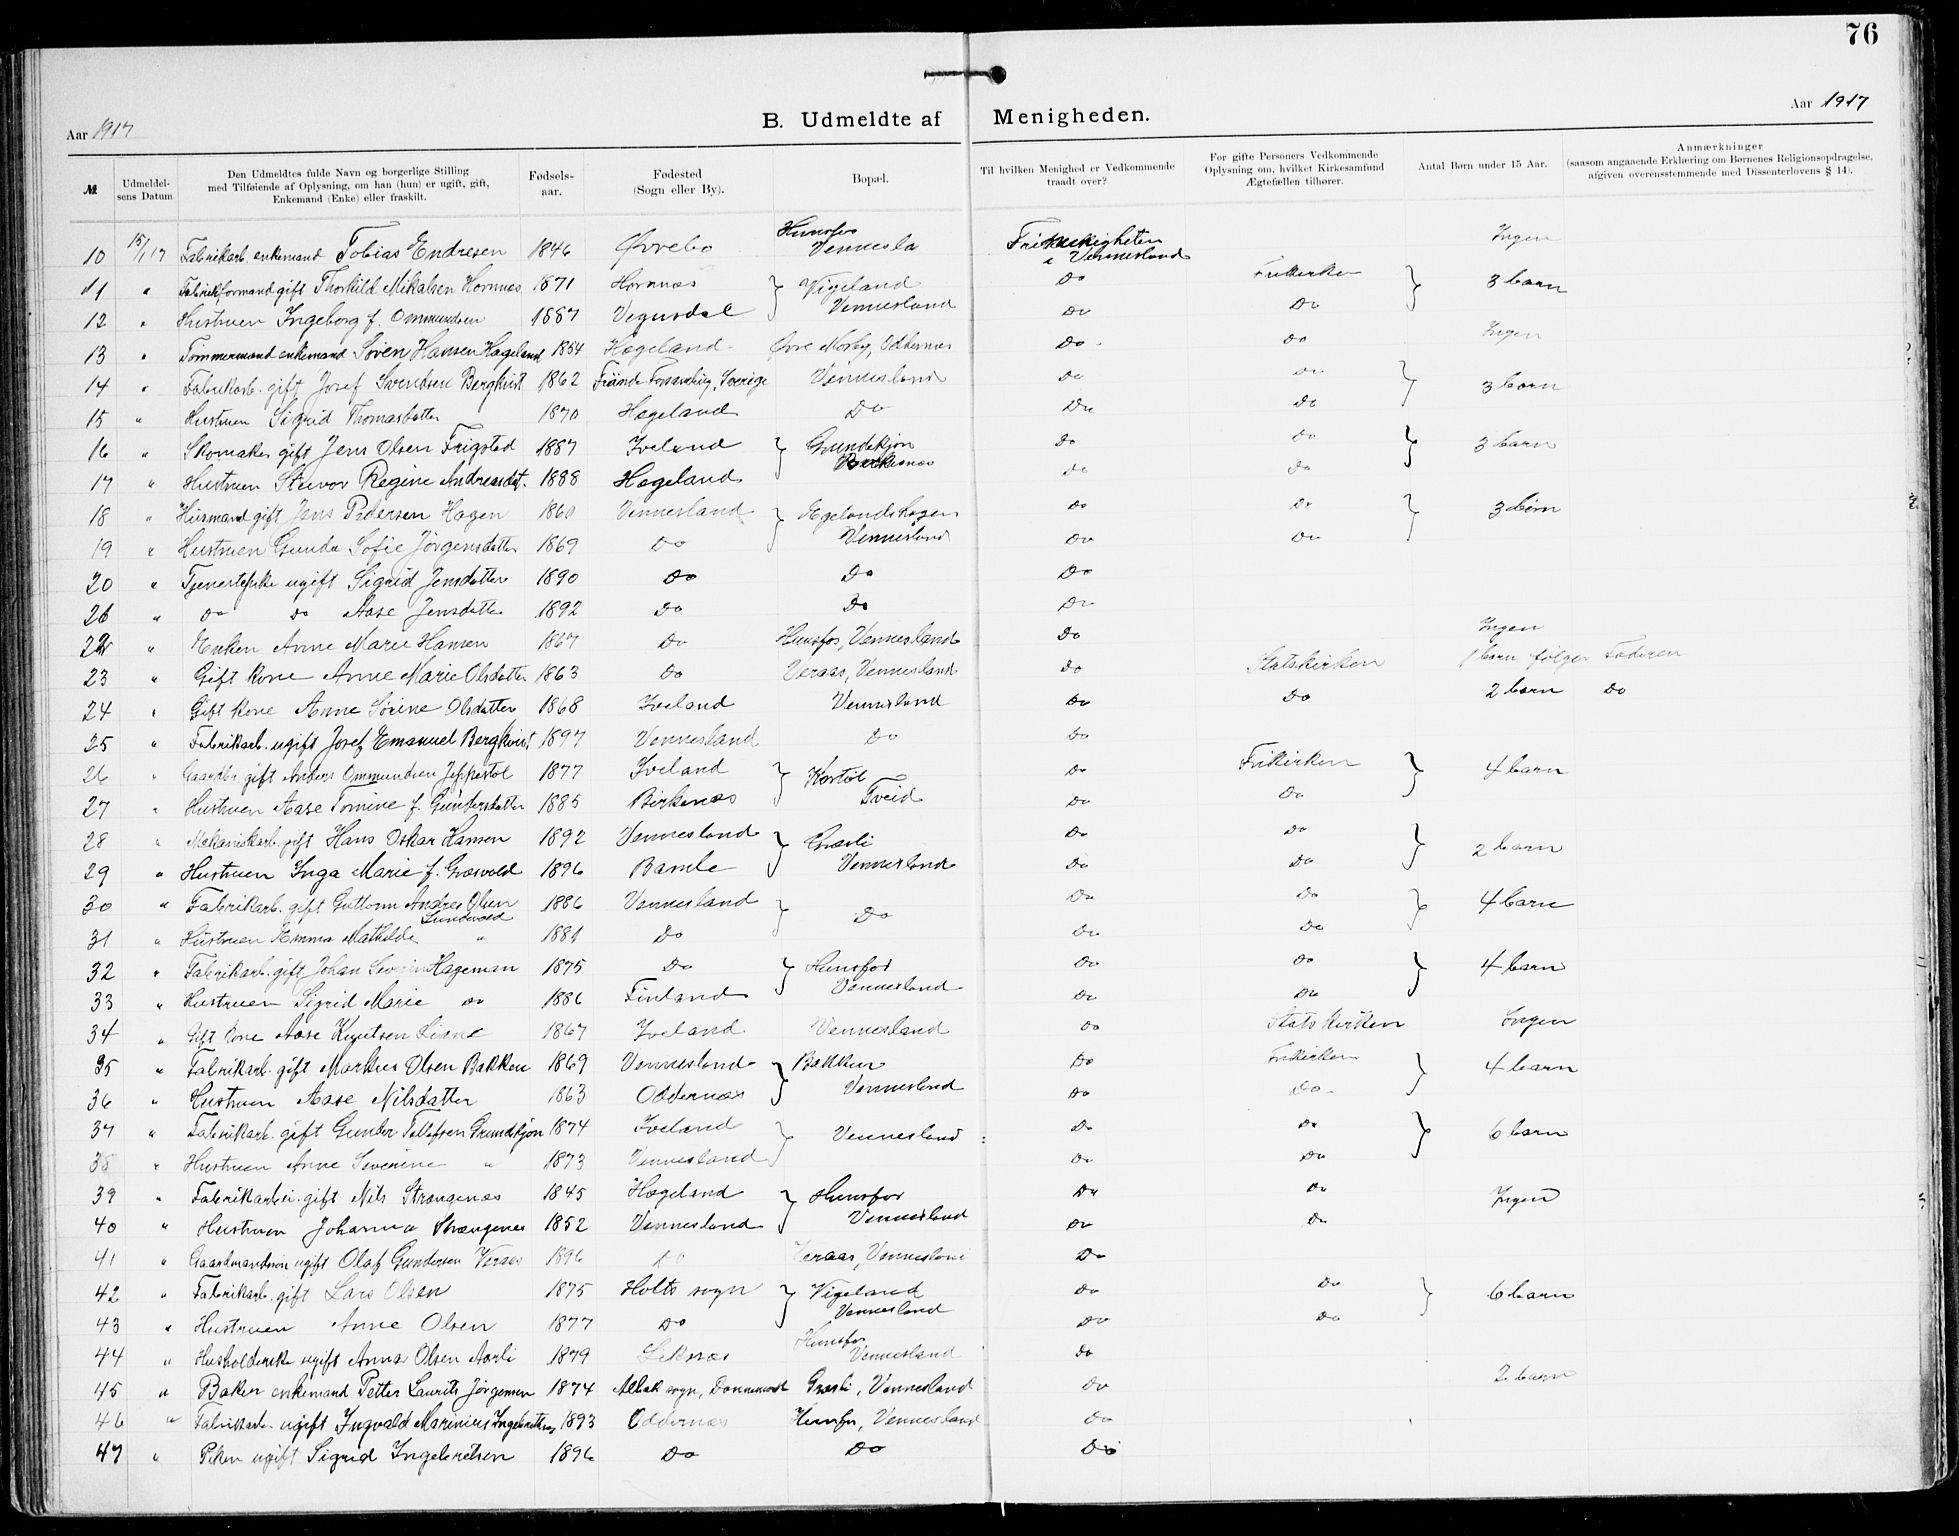 76
Aar 1917
B. Udmeldte af Menigheden.
Aar 1917
№
Udmeldelsens Datum
Den Udmeldtes fulde Navn og borgerlige Stilling med Tilføiende af Oplysning, om han (hun) er ugift, gift, Enkemand (Enke) eller fraskilt.
Fødselsaar.
Fødested (Sogn eller By).
Bopæl.
Til hvilken Menighed er Vedkommende traadt over?
For gifte Personers Vedkommende Oplysning om, hvilket Kirkesamfund Ægtefællen tilhører.
Antal Børn under 15 Aar.
Anmærkninger (saasom angaaende Erklæring om Børnenes Religionsopdragelse, afgiven overensstemmende med Dissenterlovens § 14).
10 15/1 17 Fabrikarb. enkemand Tobias Endresen 1846 Øvrebo Hunsfos Vennesla Frimenigheten i Vennesland Ingen
11 " Fabrikformand gift Thorkild Mikalsen Hornnes 1871 Hornnæs } Vigeland Do Frikirken } 3 barn
12 " Hustruen Ingeborg f. Ommundsen 1887 Vegusdal Vennesland Do Do
13 " Tømmermand enkemand Søren Hansen Hægeland 1854 Hægeland Øvre Mosby, Oddernæs Do Do Ingen
14 " Fabrikarb. gift Josef Svendsen Bergkvist 1862 Sverige Vennesland Do Do } 3 barn
15 " Hustruen Sigrid Thomasdatter 1870 Hægeland Do Do Do
16 " Skomaker gift Jens Olsen Frigstad 1887 Iveland } Grundekjøn Do Do } 3 barn
17 " Hustruen Regine Andreasdat. 1888 Hægeland Birkenæs Do Do
18 " Husmand gift Jens Pedersen Hagen 1860 Vennesland } Egelandshagen Do Do } 3 børn
19 " Hustruen Gunda Sofie Jørgensdatter 1869 Do Vennesland Do Do
20 " Tjenestepike ugift Sigrid Jensdatter 1890 Do Do Do
26 " Do Do Aase Jensdatter 1892 Do Do Do
22 " Enken Anne Marie Hansen 1867 Do Hunsfos, Vennesland Do Ingen
23 " Gift kone Anne Marie Olsdatter 1863 Do Veraas, Vennesland Do Statskirken 1 barn følger Faderen
24 " Gift kone Anne Sørine Olsdatter 1868 Iveland Vennesland Do Do 2 barn Do
25 " Fabrikarb. ugift Josef Emanuel Bergkvist 1897 Vennesland Do Do
26 " Gaardbr. gift Anders Ommundsen Jeppestøl 1877 Iveland } Kostøl Do Frikirken } 4 barn
27 " Hustruen Aase Tomine f. Gundersdatter 1885 Birkenæs Tveid Do Do
28 " Mekaniskarb. gift Hans Oskar Hansen 1892 Vennesland } Grasli Do Do } 2 barn
29 " Hustruen Inga Marie f. Græsvold 1896 Bamle Vennesland Do Do
30 " Fabrikarb. gift Guttorm Andres Olsen Lundevold 1886 Vennesland } Do Do Do } 4 barn
31 " Hustruen Emma Mathilde " 1881 Do Do Do
32 " Fabrikarb. gift Johan Severin Hageman 1875 Do } Hunsfos Do Do } 4 barn
33 " Hustruen Sigrid Marie Do 1886 Finland Vennesland Do Do
34 " Gift kone Aase Knutsen 1867 Iveland Vennesland Do Statskirken Ingen
35 " Fabrikarb. gift Markus Olsen Bakken 1869 Vennesland } Bakken Do Frikirken } 4 barn
36 " Hustruen Aase Nilsdatter 1863 Oddernæs Vennesland Do Do
37 " Fabrikarb. gift Gunder Tellefsen Grundekjøn 1874 Iveland } Vennesland Do Do } 6 barn
38 " Hustruen Anne Severine " 1873 Vennesland Do Do
39 " Fabrikarbei. gift Nils Strængenæs 1845 Hægeland } Hunsfos Do Do Ingen
40 " Hustruen Johanna Strængenes 1852 Vennesland Vennesland Do Do
41 " Gaardmandssøn ugift Olaf Gundersen Veraas 1896 Do Veraas, Vennesland Do
42 " Fabrikarb. gift Lars Olsen 1875 Holts sogn } Vigeland Do Do } 6 barn
43 " Hustruen Anne Olsen 1877 Do Vennesland Do Do
44 " Husholderske ugift Anna Olsen Aarli 1879 Liknæs Hunsfos Vennesland Do
45 " Baker enkemand Petter Laurits Jørgensen 1874 Albæk sogn, Dannemark Graslí, Vennesland Do 2 barn
46 " Fabrikarb. ugift Ingvald Marinius Ingebretsen 1893 Oddernæs Hunsfos, Vennesland Do
47 " Piken ugift Sigrid Ingebretsen 1896 Do Do Do